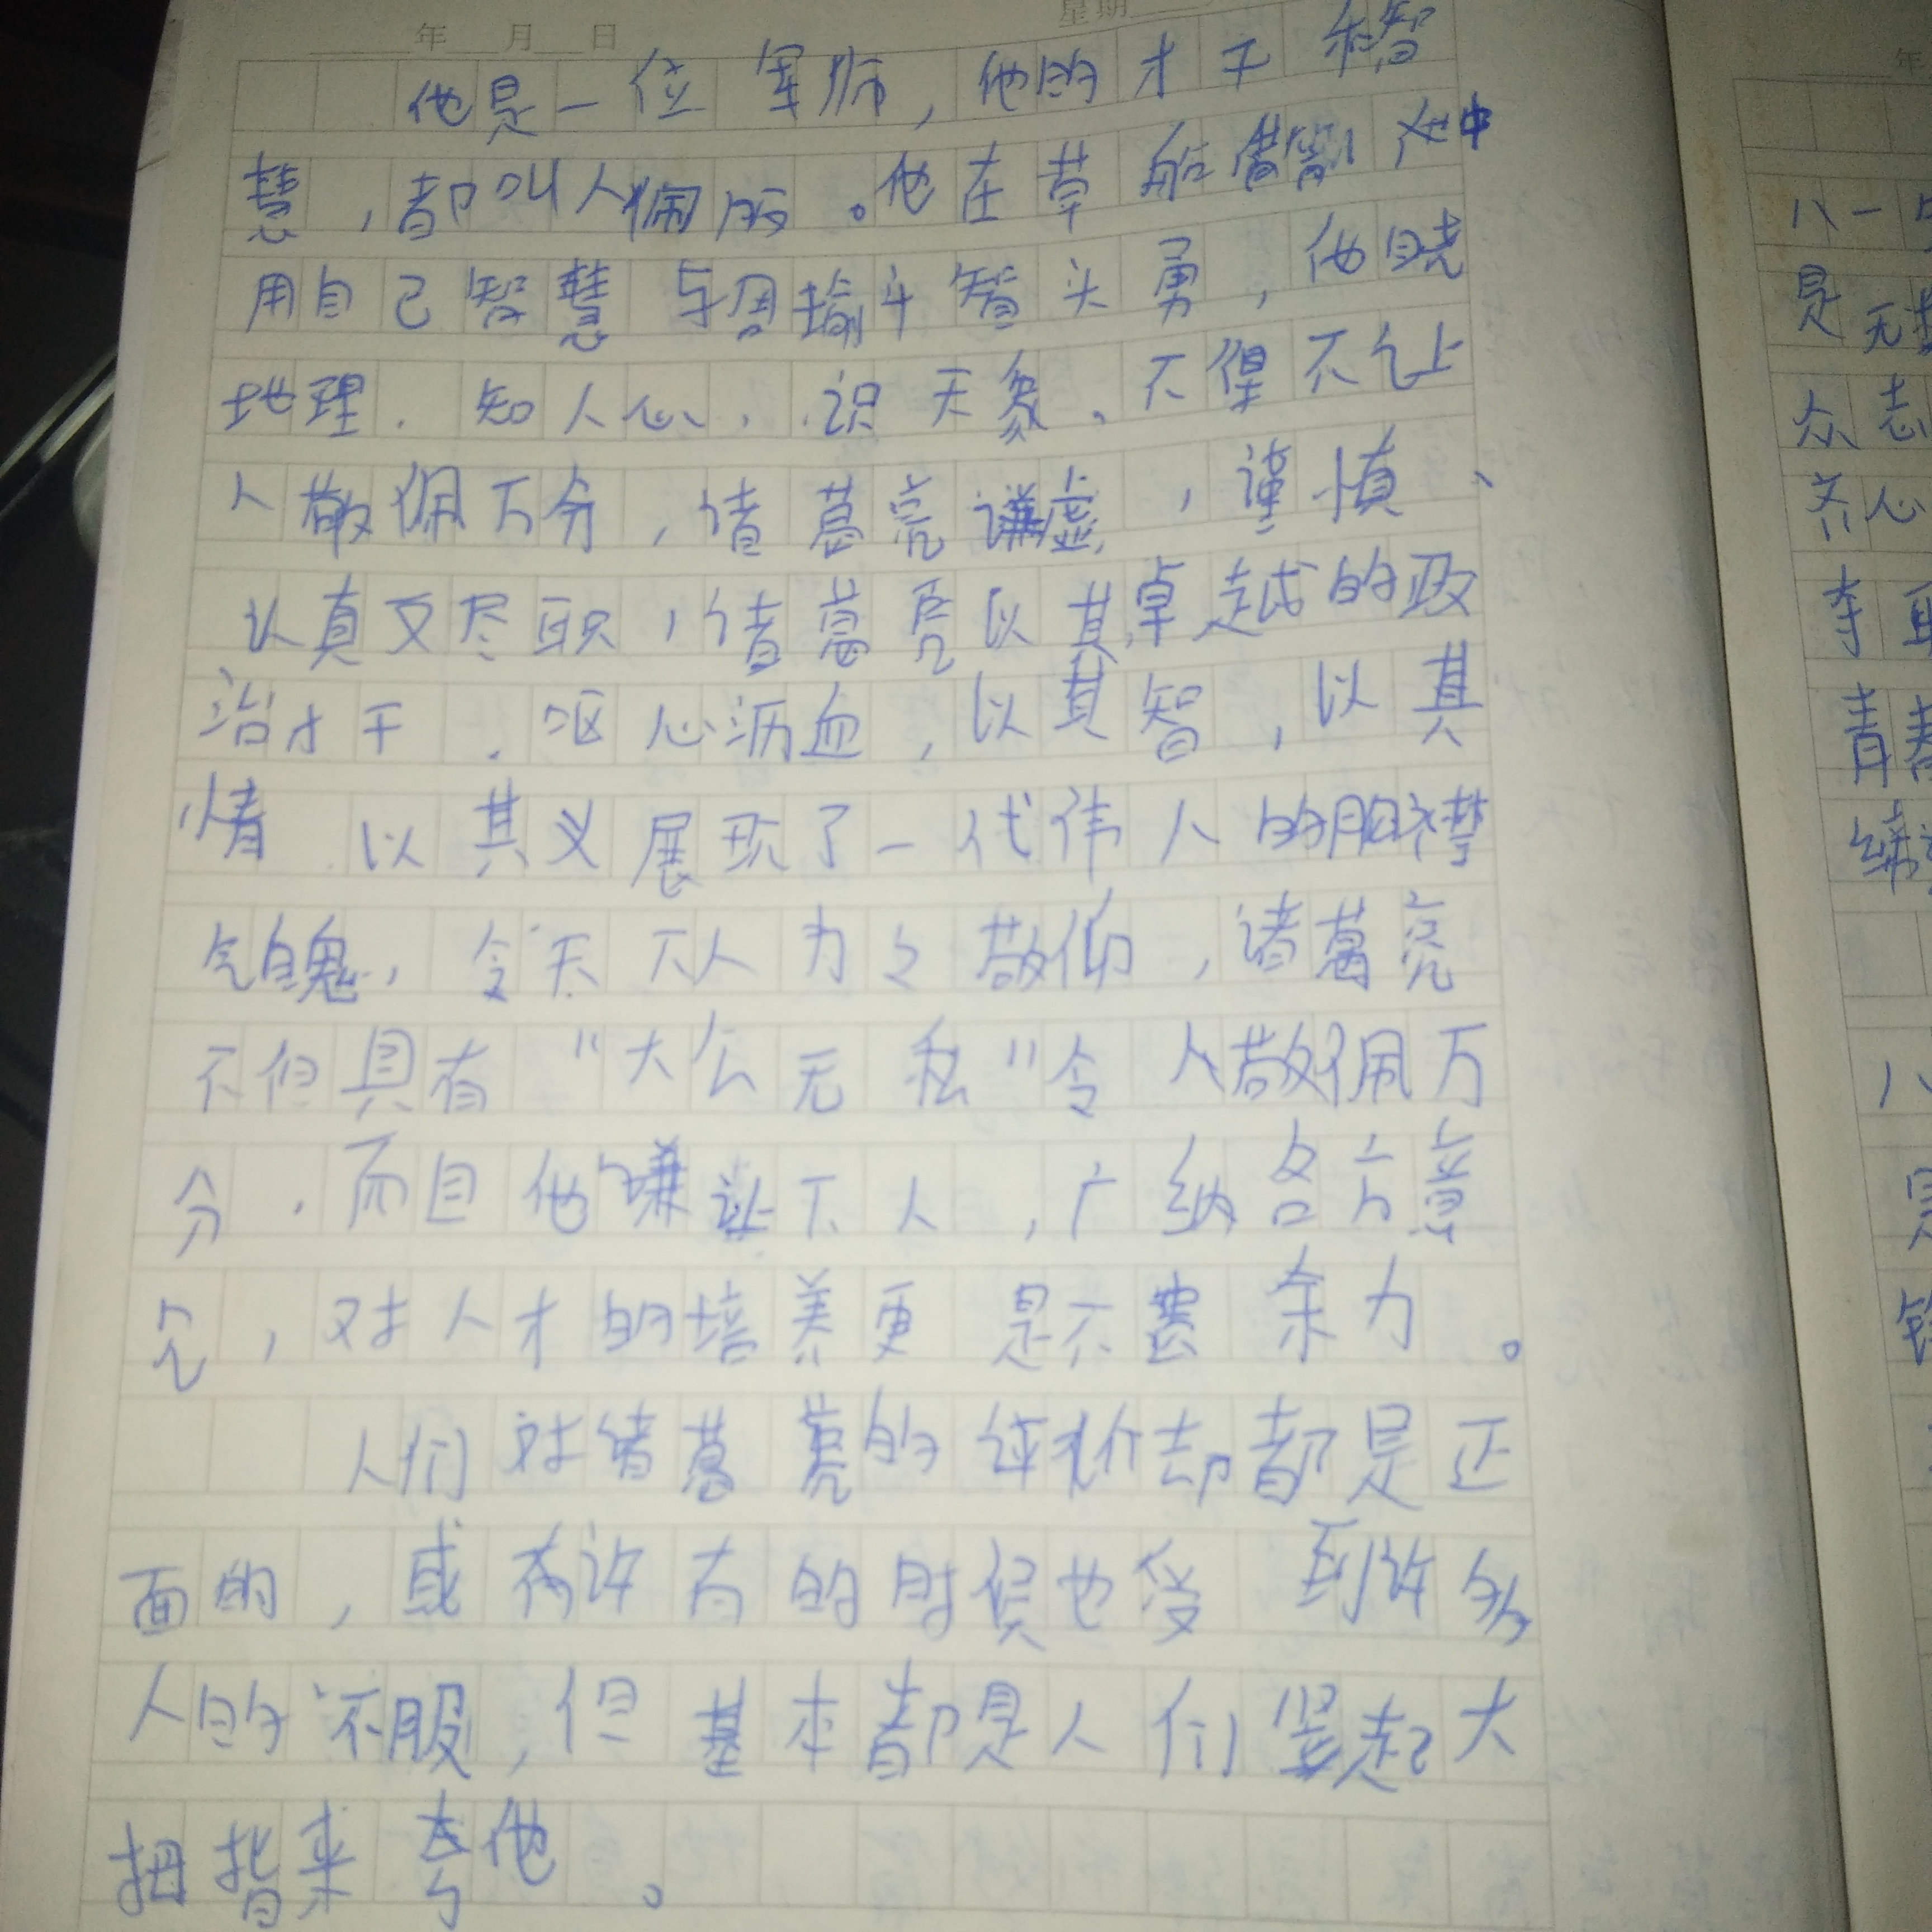 年 月 日 星期
他是一位军师，他的才干和智
慧，都叫人佩服。他在草船借箭中
用自己智慧与周瑜斗智头勇，他晓
地理．知人心，识天象。不得不让
人敬佩万分，诸葛亮谦虚，谨慎、
认真又尽职，诸葛亮以其卓越的政
治才干．呕心沥血，以其智，以其
情 以其义展现了一代伟人的胸襟
气魄，令天下人为之敬仰，诸葛亮
不但具有“大公无私”令人敬佩万
分．而且他谦让下人，广纳各方意
见，对人才的培养更是不费余力。
人们对诸葛亮的评价却都是正
面的，或有许有的时候也受到许多
人的不服，但基本都是人们竖起大
拇指来夸他。
年
八一
是无
众志
齐心
李
青春
八